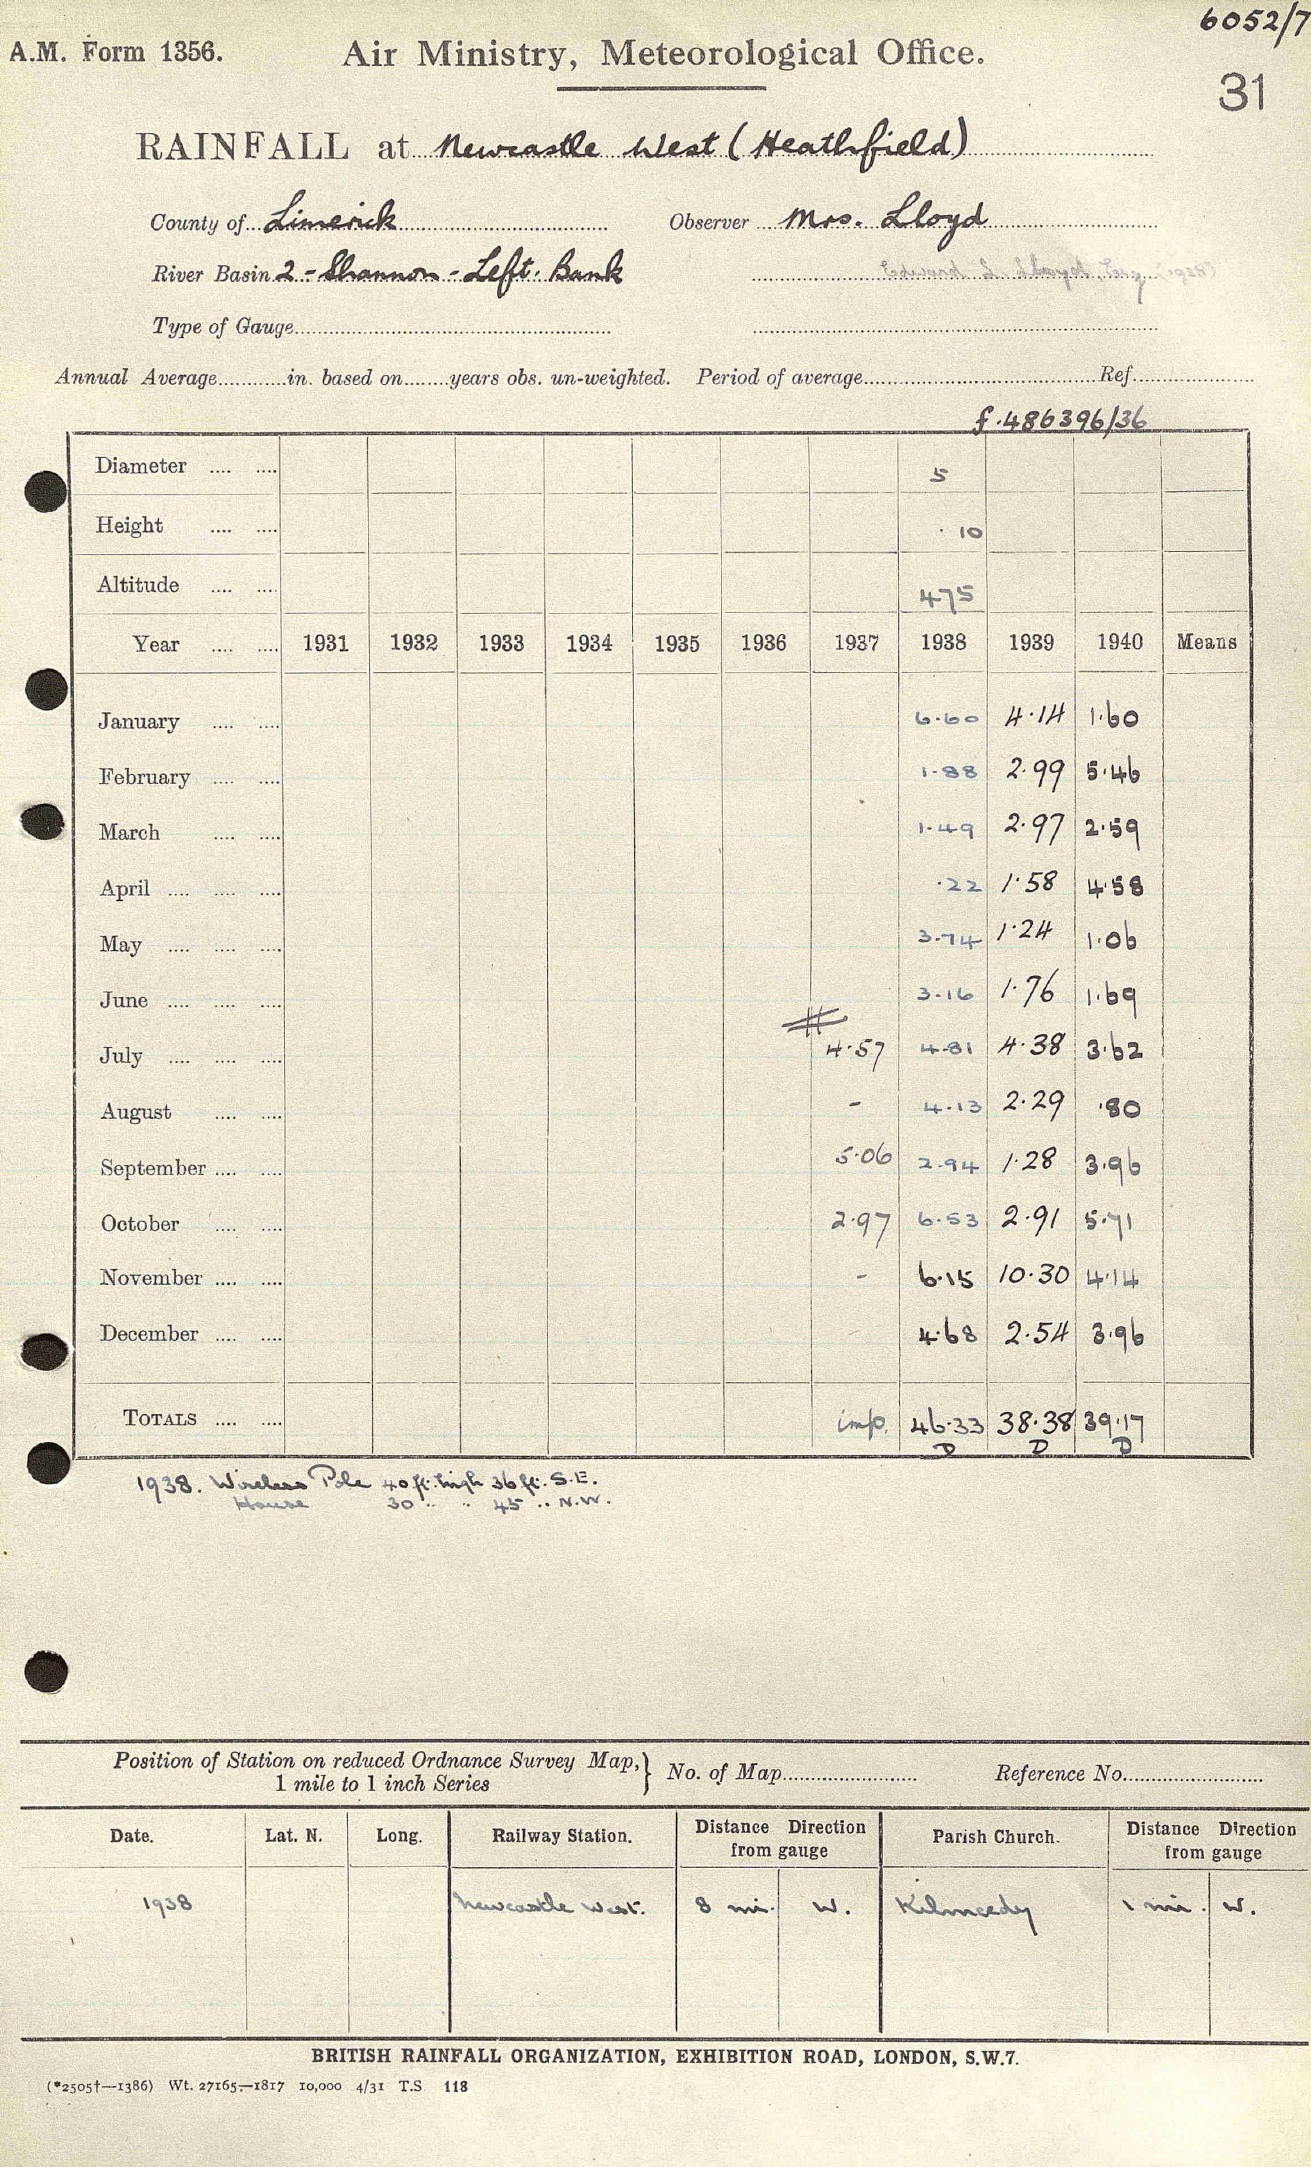 6052/7
A.M. Form 1356. Air Ministry, Meteorological Office.
31
RAINFALL at Newcastle West (Heathfield)
County of Limerick Observer Mrs. Lloyd
River Basin 2 - Shannon - Left. Bank Edward L. Lloyd, Esq (1938)
Type of Gauge
Annual Average in. based on years obs. un-weighted. Period of average Ref.
f.486396/36
Diameter .... .... 5
Height .... .... . 10
Altitude .... .... 475
Year .... .... 1931 1932 1933 1934 1935 1936 1937 1938 1939 1940 Means
January .... .... 6.60 4.14 1.60
February .... .... 1.88 2.99 5.46
March .... .... 1.49 2.97 2.59
April .... .... .... .22 1.58 4.58
May .... .... .... 3.74 1.24 1.06
June .... .... .... 3.16 1.76 1.69
July .... .... .... 4.57 4.81 4.38 3.62
August .... .... - 4.13 2.29 .80
September .... .... 5.06 2.94 1.28 3.96
October .... .... 2.97 6.53 2.91 5.71
November .... .... - 6.15 10.30 4.14
December .... .... 4.68 2.54 3.96
TOTALS .... .... imp. 46.33 38.38 39.17
D D D
1938. Wireless Pole 40 ft. high 36 ft. S.E.
House 30 " " 45 " N.W.
Position of Station on reduced Ordnance Survey Map, } No. of Map Reference No.
1 mile to 1 inch Series
Date. Lat. N. Long. Railway Station. Distance Direction from gauge Parish Church. Distance Direction from gauge
1938 Newcastle West. 8 mi. W. Kilmeedy 1 mi. W.
BRITISH RAINFALL ORGANIZATION, EXHIBITION ROAD, LONDON, S.W.7.
(*2505†—1386) Wt. 27165—1817 10,000 4/31 T.S 118